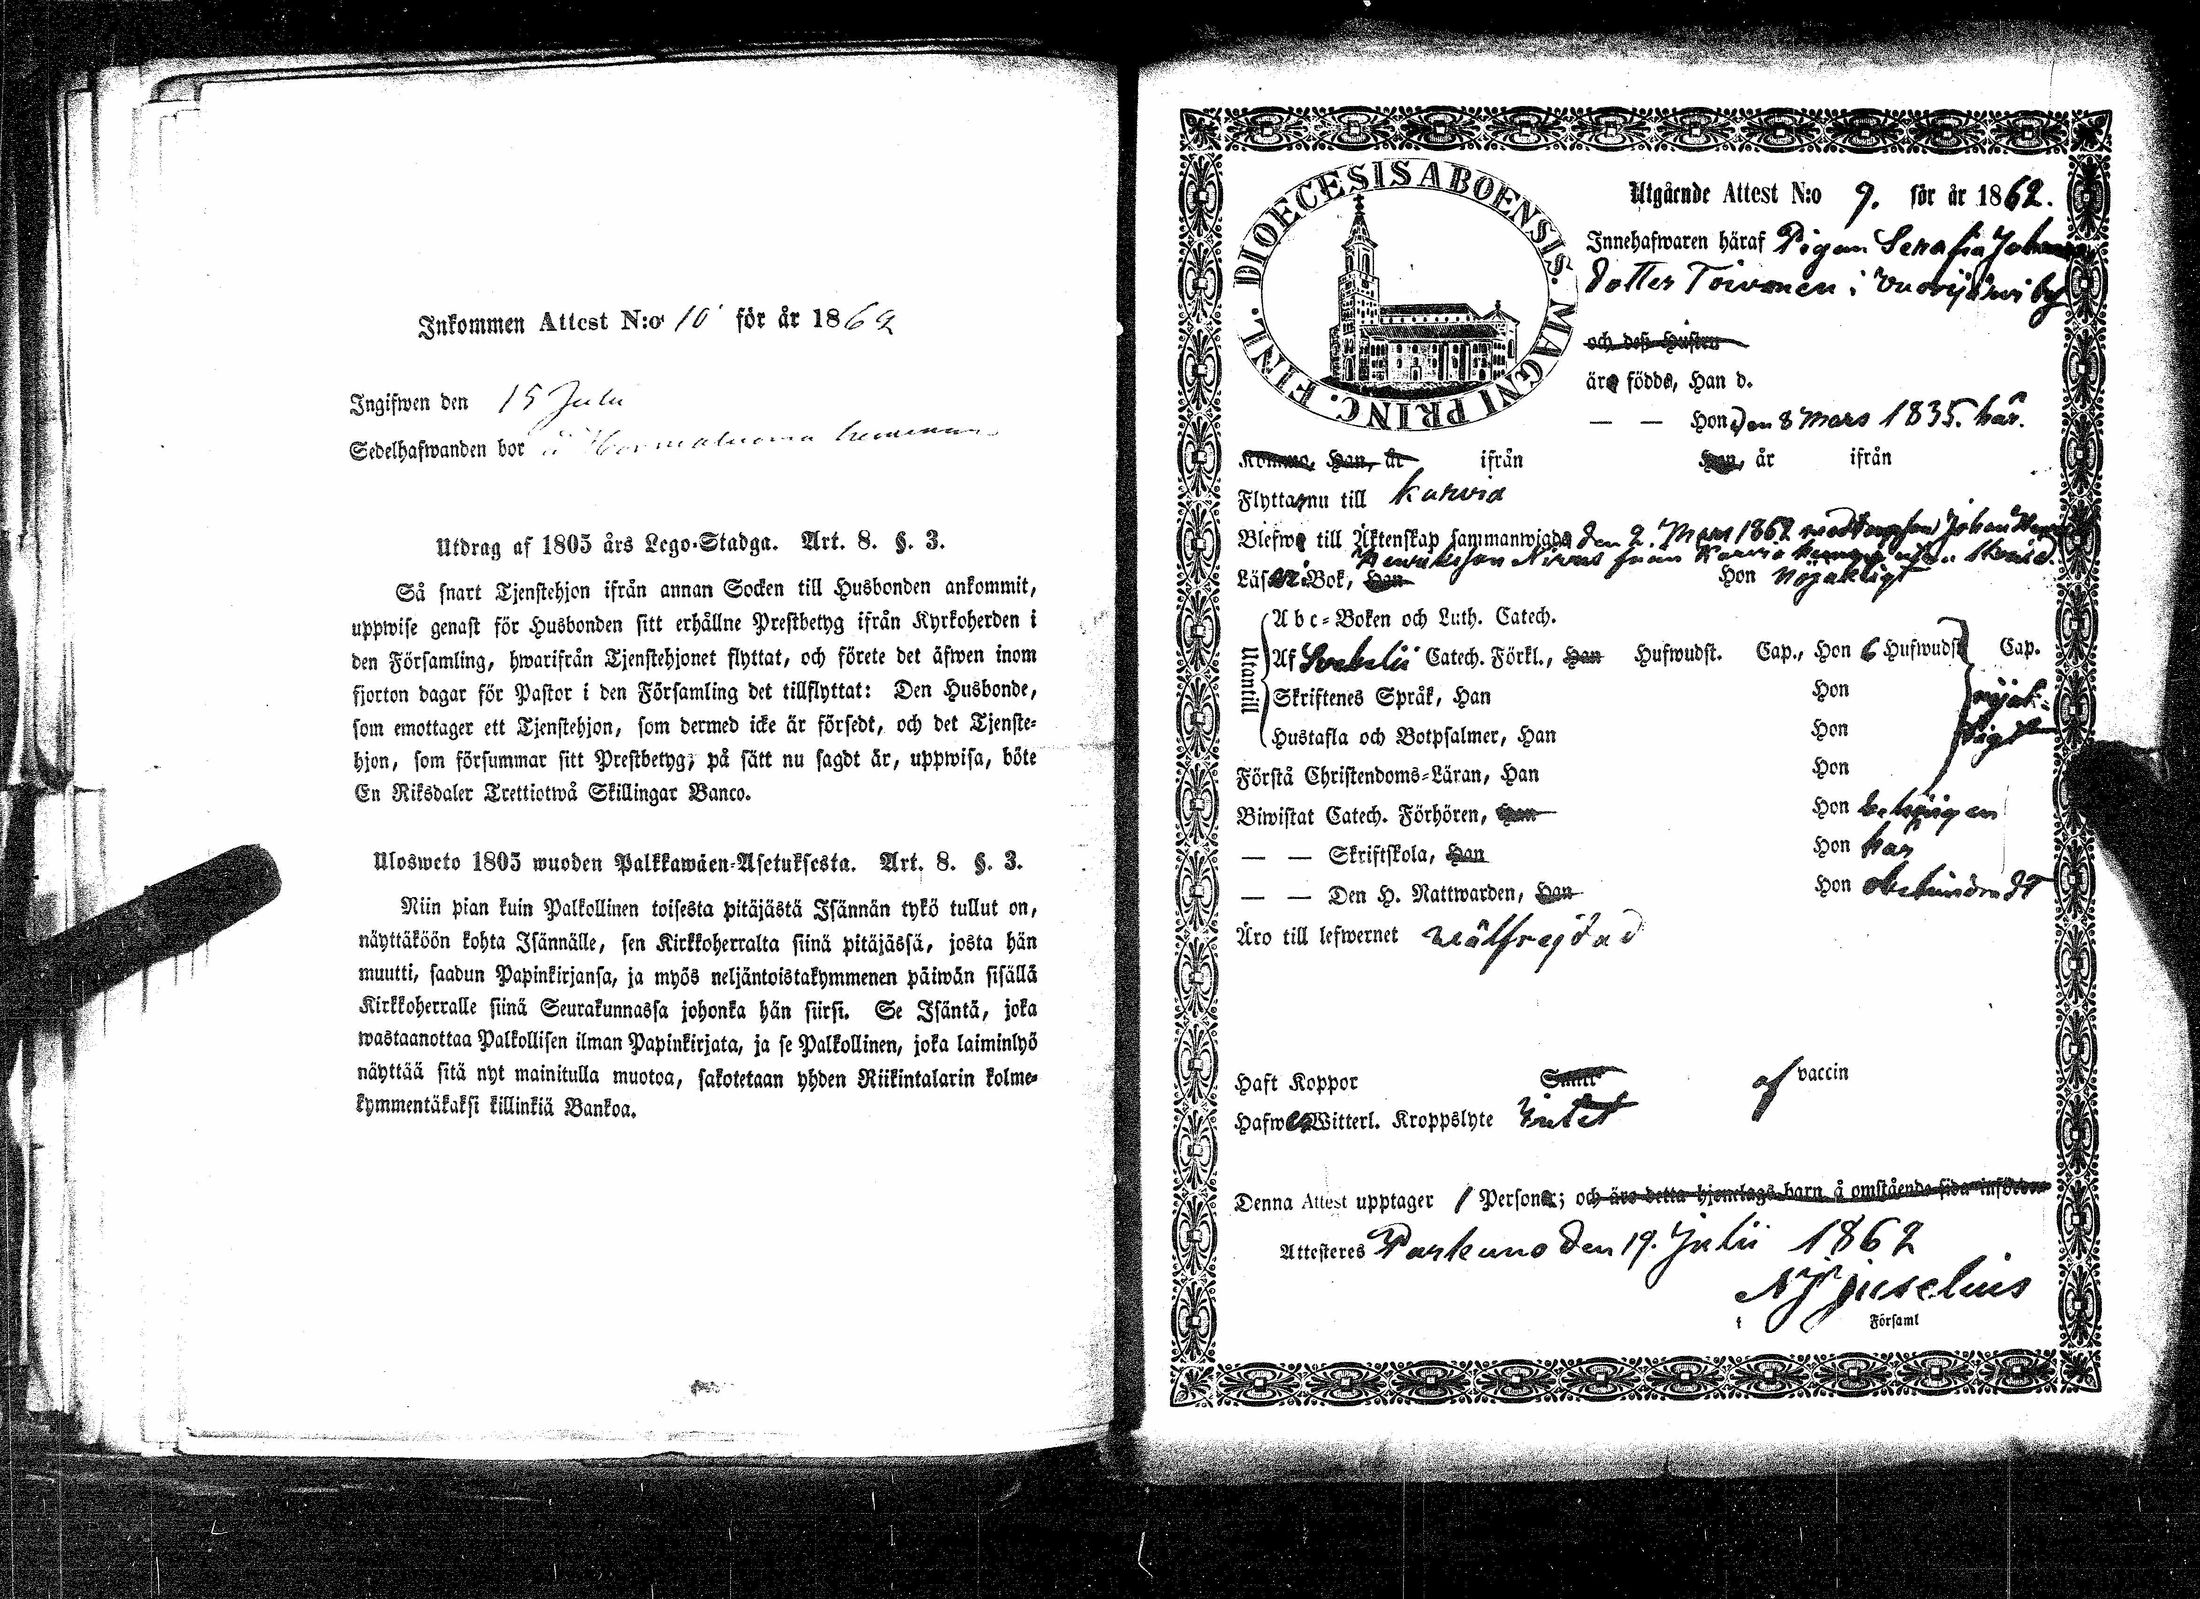 Inkommen Attest N:o 10 för år 1862
Ingifwen den 15 Julii
Sedelhafwanden bor å
Utdrag af 1805 års Lego-Stadga. Art. 8. §. 3.
Så snart Tjenstehjon ifrån annan Socken till Husbonden ankommit,
uppwise genast för Husbonden sitt erhållne Prestbetyg ifrån Kyrkoherden i
den Församling, hwarifrån Tjenstehjonet flyttat, och förete det äfwen inom
fjorton dagar för Pastor i den Församling det tillflyttat: Den Husbonde,
som emottager ett Tjenstehjon, som dermed icke är försedt, och det Tjenste-
hjon, som försummar sitt Prestbetyg, på sätt nu sagdt är, uppwisa, böte
En Riksdaler Trettiotwå Skillingar Banco.
Ulosweto 1805 wuoden Palkkawäen-Asetuksesta. Art. 8. §. 3.
Niin pian kuin Palkollinen toisesta pitäjästä Isännän tykö tullut on,
näyttäköön kohta Isännälle, sen Kirkkoherralta siinä pitäjässä, josta hän
muutti, saadun Papinkirjansa, ja myös neljäntoistakymmenen päiwän sisällä
Kirkkoherralle siinä Seurakunnassa johonka hän siirsi. Se Isäntä, joka
wastaanottaa Palkollisen ilman Papinkirjata, ja se Palkollinen, joka laiminlyö
näyttää sitä nyt mainitulla muotoa, sakotetaan yhden Riikintalarin kolme-
kymmentäkaksi killinkiä Bankoa.
DIOECESIS ABOENSIS. MAGNI PRINC. FINL.
Utgående Attest N:o 9. för år 1862.
Innehafwaren häraf Pigan Serafia Johans
dotter Toivonen i Vuorijärvi by
och deß Hustru
äro födde, Han d.
— — Hon den 8 Mars 1835. här.
Komne, Han, år ifrån Hon, år ifrån
Flytta nu till Karvia
Blefwo till Äktenskap sammanwigda den 2. Mars 1862 med Johan
Henriksson från Karvia
Läser i Bok, Han Hon nöjakligt
Utantill
Abc-Boken och Luth. Catech.
Af Svebelii Catech. Förkl., Han Hufwudst. Cap., Hon 6 Hufwudst. Cap.
Skriftenes Språk, Han Hon nöjak-
Hustafla och Botpsalmer, Han Hon ligt
Förstå Christendoms-Läran, Han Hon
Biwistat Catech. Förhören, Han Hon behörigen
— — Skriftskola, Han Hon här
— — Den H. Nattwarden, Han Hon obehindradt
Äro till lefwernet välfrejdad
Haft Koppor Smitt af vaccin
Hafwa Witterl. Kroppslyte Intet
Denna Attest upptager 1 Persone; och äro detta hjonelags barn å omstående sida införde
Attesteres Parkano den 19. Julii 1862
N J Juselius
i Församl